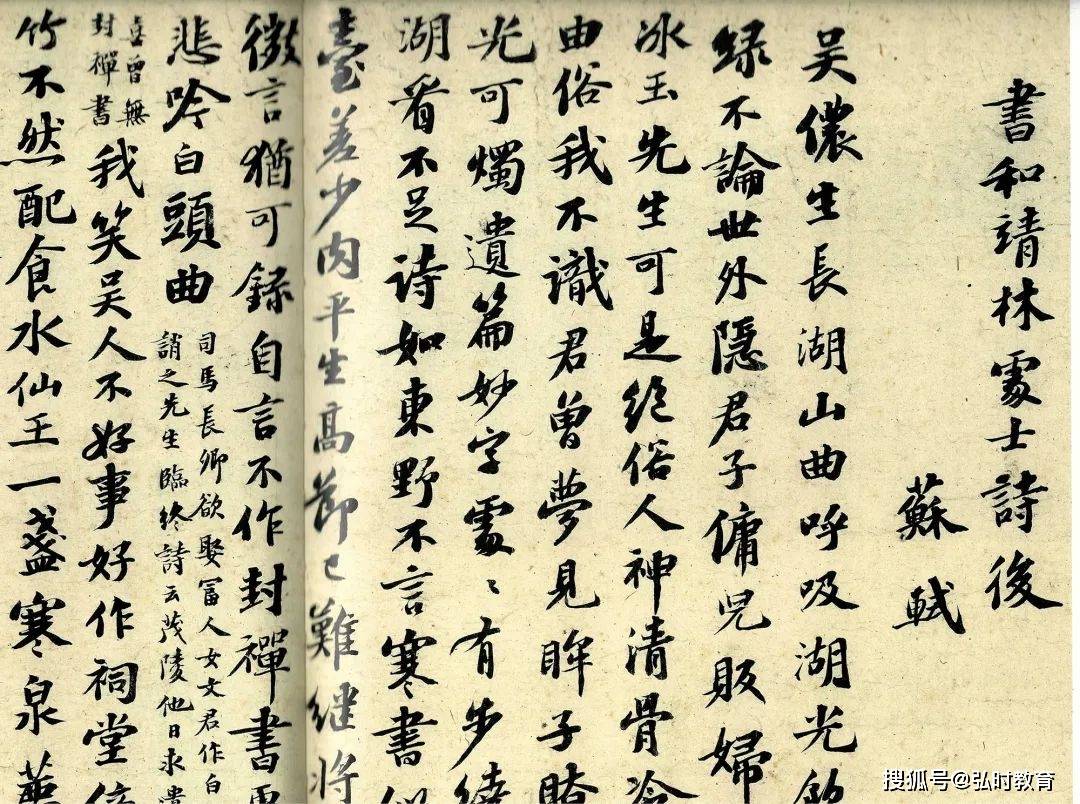 書和靖林處士詩後
蘇軾
吳儂生長湖山曲呼吸湖光飲
緑不論世外隱君子傭兒販婦
冰玉先生可是絕俗人神清骨冷
由俗我不識君曾夢見眸子瞭
光可燭遺篇妙字處〻有步繞
湖看不足詩如東野不言寒書似
臺差少肉平生高節已難繼將
微言猶可録自言不作封禪書更
悲吟白頭曲
司馬長卿欲娶冨人女文君作白
誚之先生臨終詩云茂陵他日求遺
喜曾無
封禪書
我笑吳人不好事好作祠堂傍
竹不然配食水仙王一盞寒泉薦
搜狐号@弘时教育